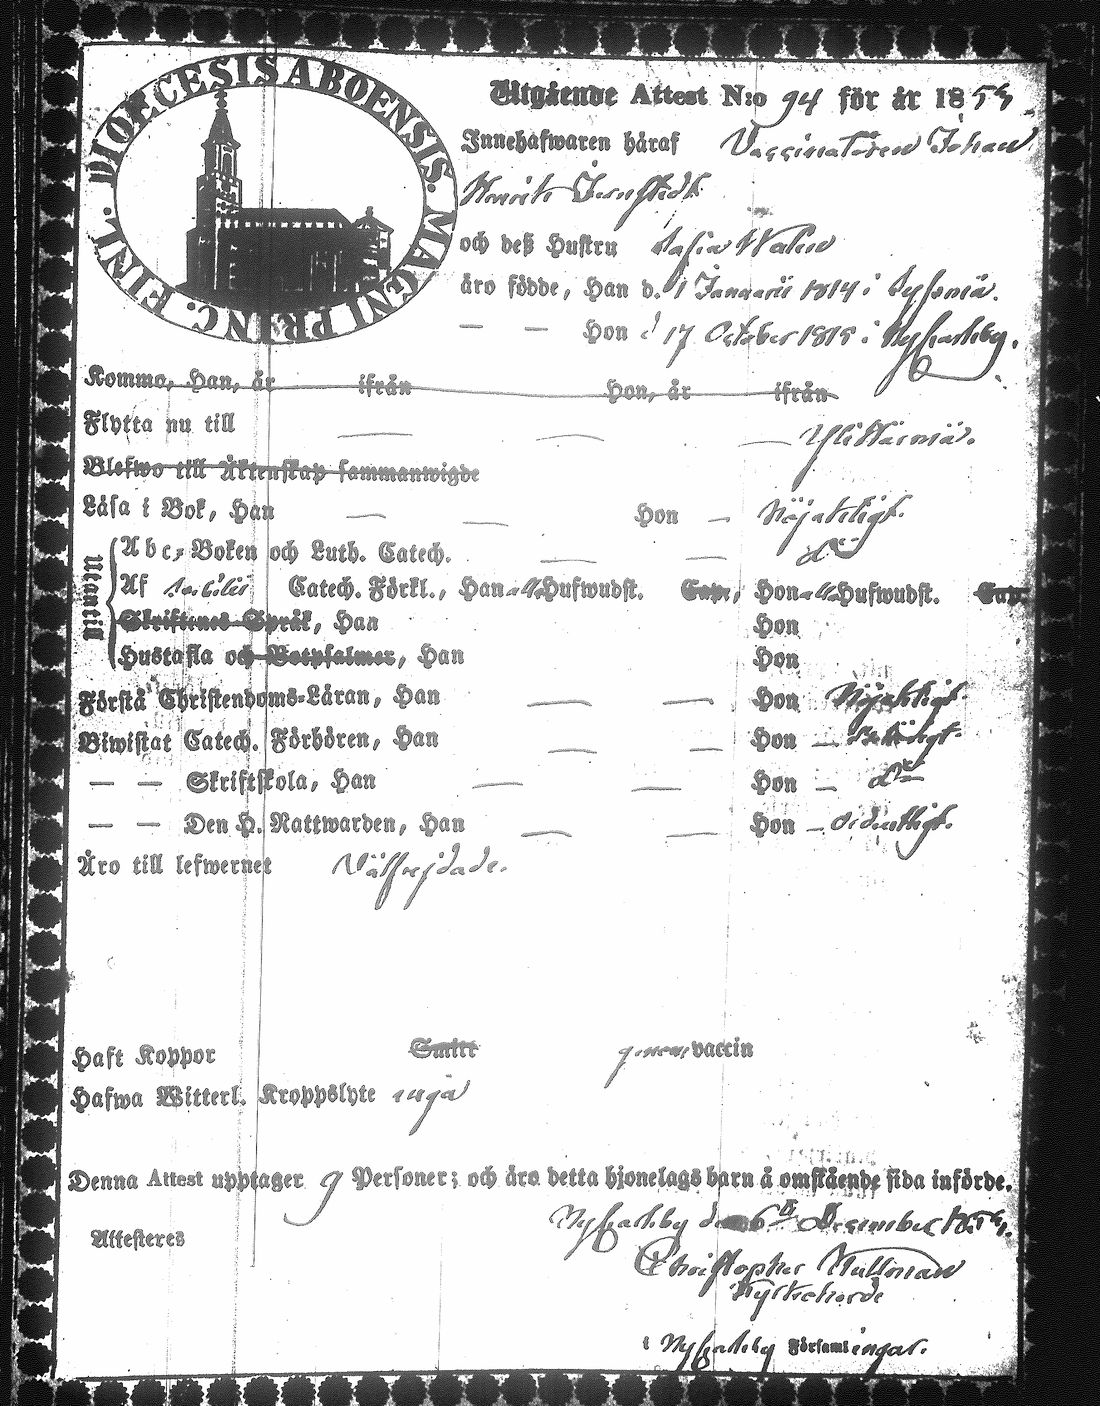 DIOECESIS ABOENSIS. MAGNI PRINC. FINL.
Utgående Attest N:o 94 för år 1854.
Innehafwaren häraf Vaccinatören Johan
Henrik
och deß Hustru Sofia Walin
äro födde, Han d. 1 Januarii 1814 i
— — Hon d 17 October 1815 i Nykarleby.
Komma, Han, år ifrån Hon, år ifrån
Flytta nu till — — — Ylistaro
Blefwo till Äktenskap sammanwigde
Läsa i Bok, Han — — Hon — Nöjaktligt.
Utantill
A b c, Boken och Luth. Catech. — — do
Af Svebilii Catech. Förkl., Han Hufwudst. Cap., Hon Hufwudst. Cap.
Skriftenes Språk, Han Hon
Hustafla och Botpsalmer, Han Hon
Förstå Christendoms-Läran, Han — — Hon Nöjaktligt
Biwistat Catech. Förhören, Han — — Hon —
— — Skriftskola, Han — — Hon — do
— — Den H. Nattwarden, Han — — Hon — ordentligt.
Äro till lefwernet Välfrejdade.
Haft Koppor Smitt genom vaccin
Hafwa Witterl. Kroppslyte inga
Denna Attest upptager 9 Personer; och äro detta hjonelags barn å omstående sida införde.
Nykarleby den 6 December 1854.
Attesteres
Christopher
Kyrkoherde
i Nykarleby Församlingar.